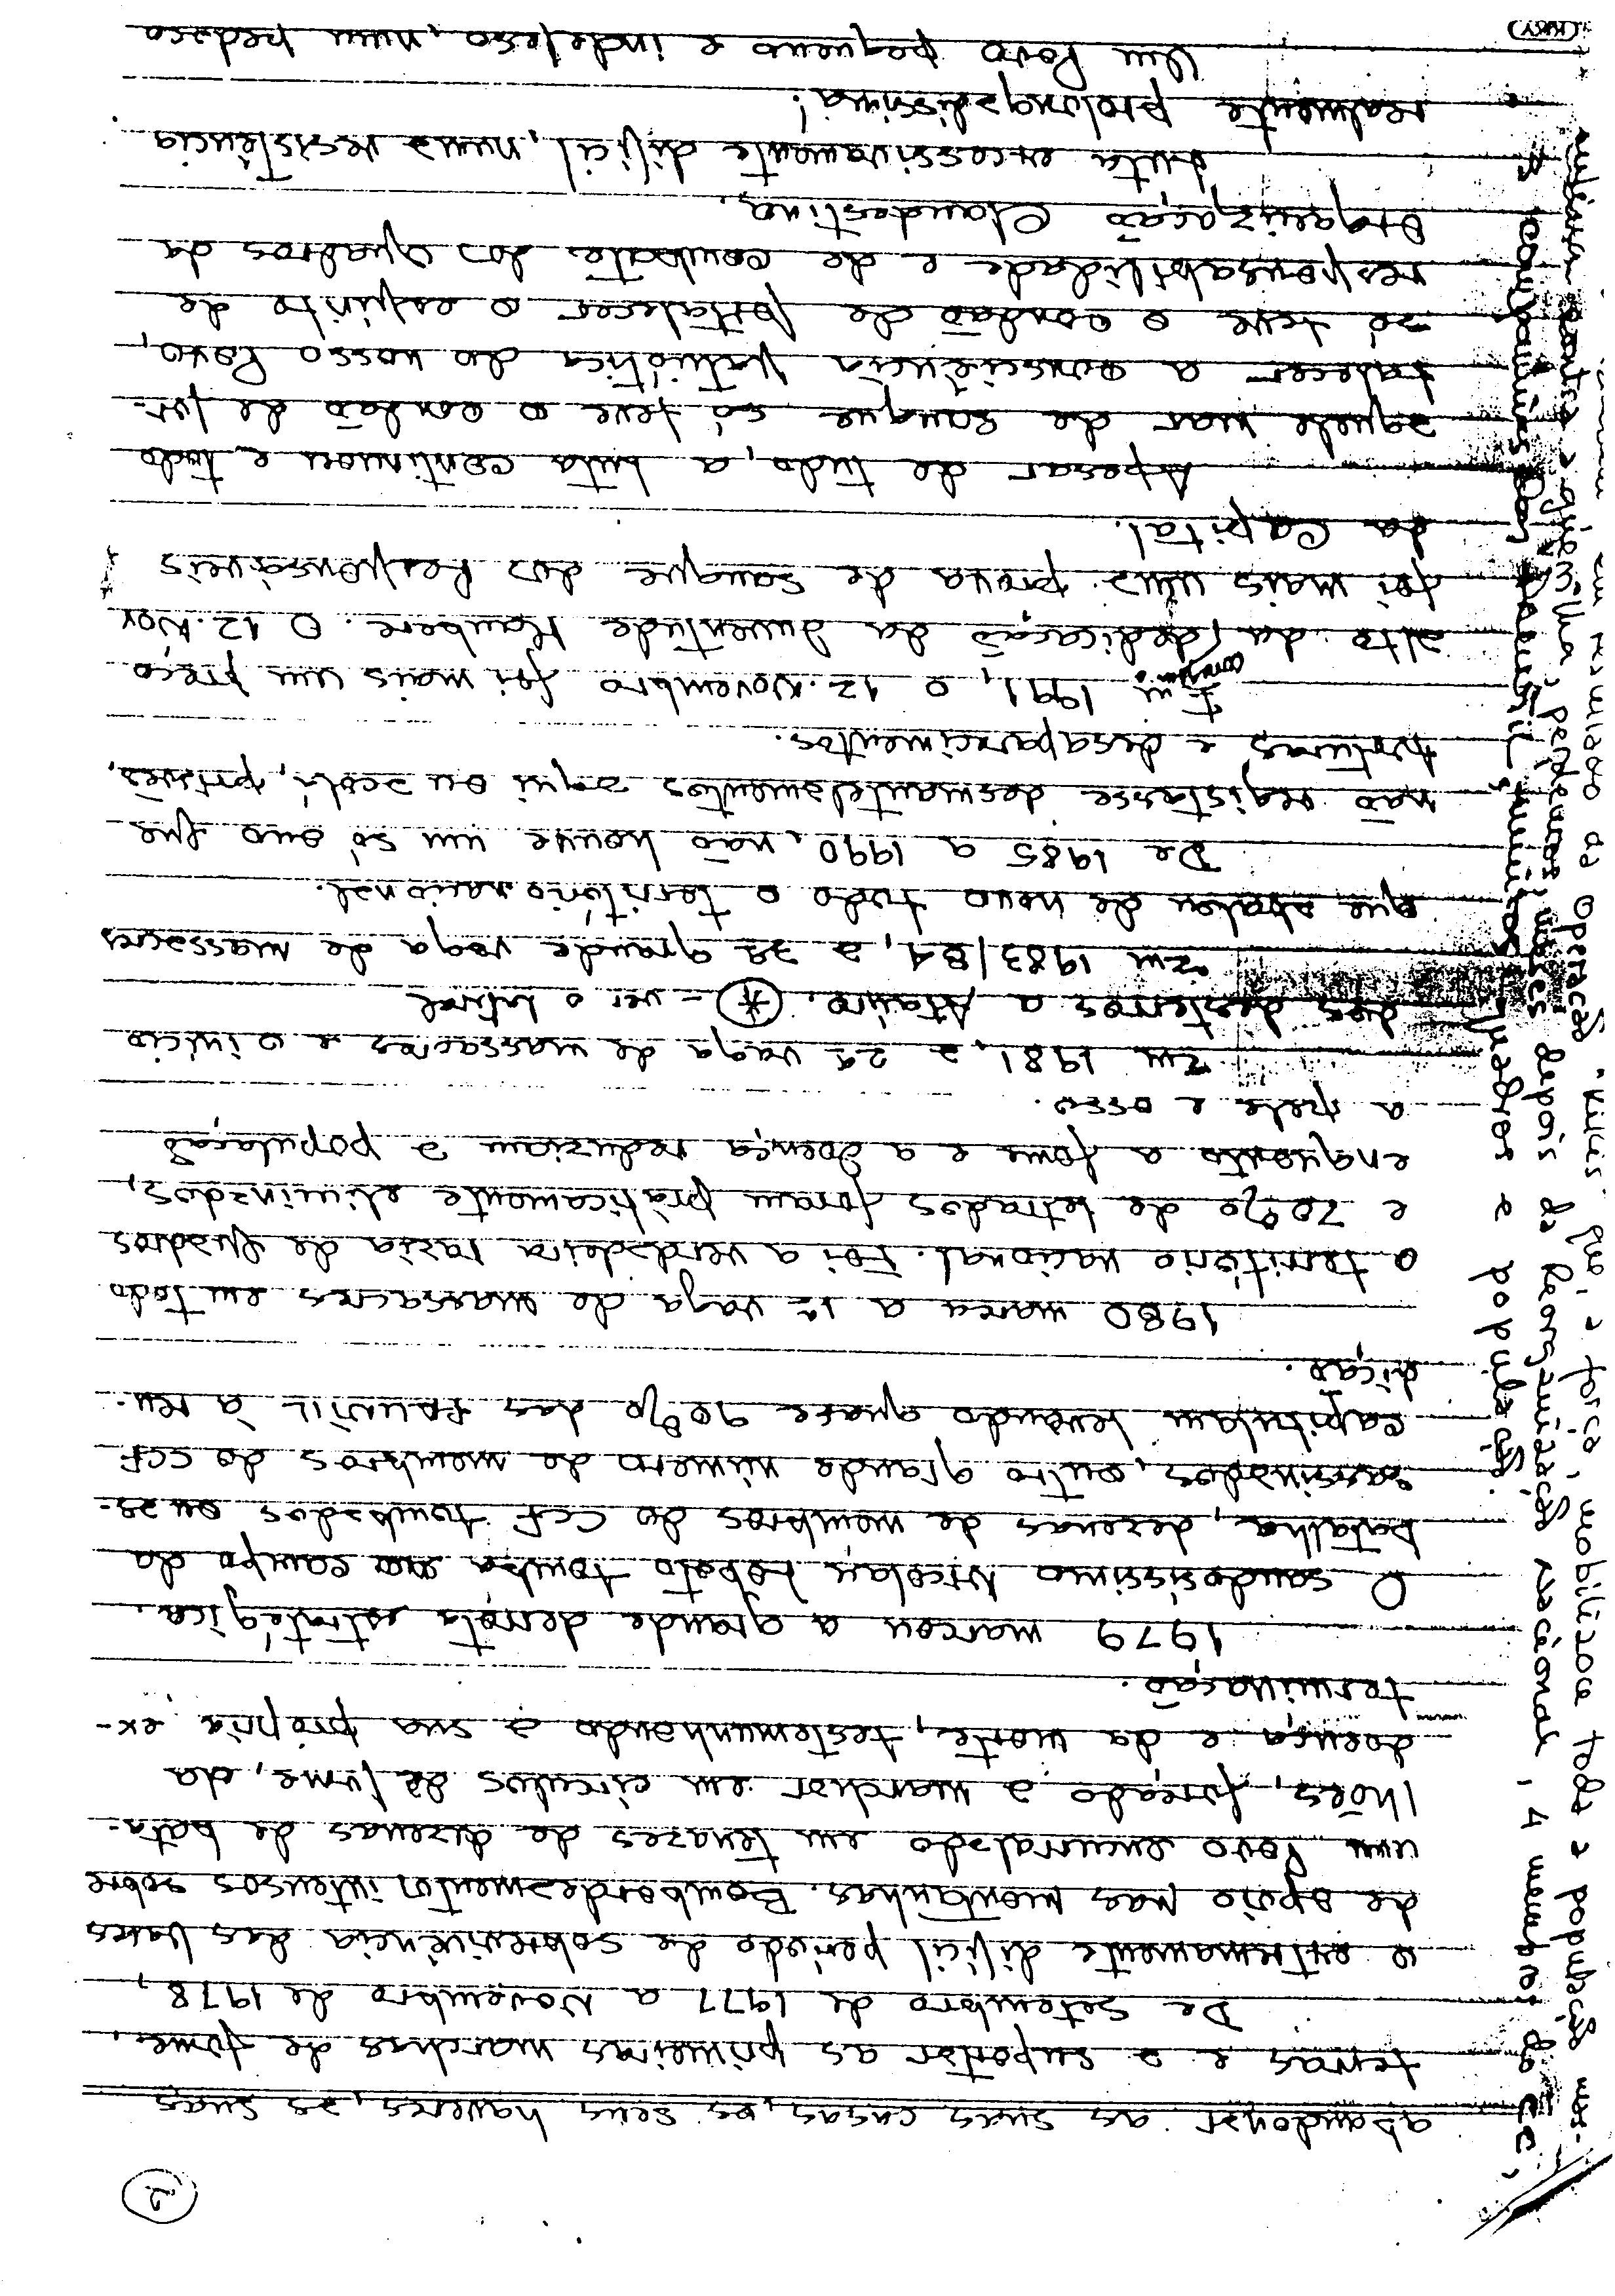 2
abandonar as suas casas, os seus haveres, as suas
terras e a suportar as primeiras marchas de fome.
De Setembro de 1977 a Novembro de 1978,
o extremamente difícil período de sobrevivência das bases
de apoio nas montanhas. Bombardeamentos intensos sobre
um Povo encurralado em terras de dezenas de bata-
lhões, forçado a marchar em círculos de fome, da
doença e da morte, testemunhando a sua própria ex-
terminação.
1979 marcou a grande derrota estratégica.
O saudosíssimo Nicolau Lobato tomba no campo da
Batalha, dezenas de membros do CCF tombados ou as-
sassinados, outro grande número de membros do CCF
capitulam levando quase 90% das FALINTIL à ren-
dição.
1980 marca a 1ª vaga de massacres em todo
o território nacional. Foi a verdadeira razia de quadros
e 70% de letrados foram praticamente eliminados,
enquanto a fome e a doença reduziam a população
a pele e osso.
Em 1981, a 2ª vaga de massacres e o início
dos desterros a Ataúro. (*) - ver o verso
Em 1983/84, a 3ª grande vaga de massacres
que abala de novo todo o território nacional.
De 1985 a 1990, não houve um só ano que
não registasse desmantelamentos aqui ou acolá, prisões,
torturas e desaparecimentos.
Em 1991, o 12.Novembro foi mais um preço
alto da dedicação da juventude Maubere. O 12.Nov
foi mais uma prova de sangue dos Fatuponsabuis
da Capital.
Apesar de tudo, a luta continuou e todo
aquele mar de sangue só teve o condão de for-
talecer a consciência patriótica do nosso Povo,
só teve o condão de fortalecer o espírito de
responsabilidade e de combate dos quadros da
Organização Clandestina.
Luta excessivamente difícil, numa resistência
realmente prolongadíssima;
Um Povo pequeno e indefeso, num pedaço
resultado da Operação "Kikis" que, à força, mobilizou toda a população mas-
culina contra a guerrilha, perdemos, meses depois da Reorganização Nacional, 4 membros do CC,
companhias das Falintil, muitos quadros e população.